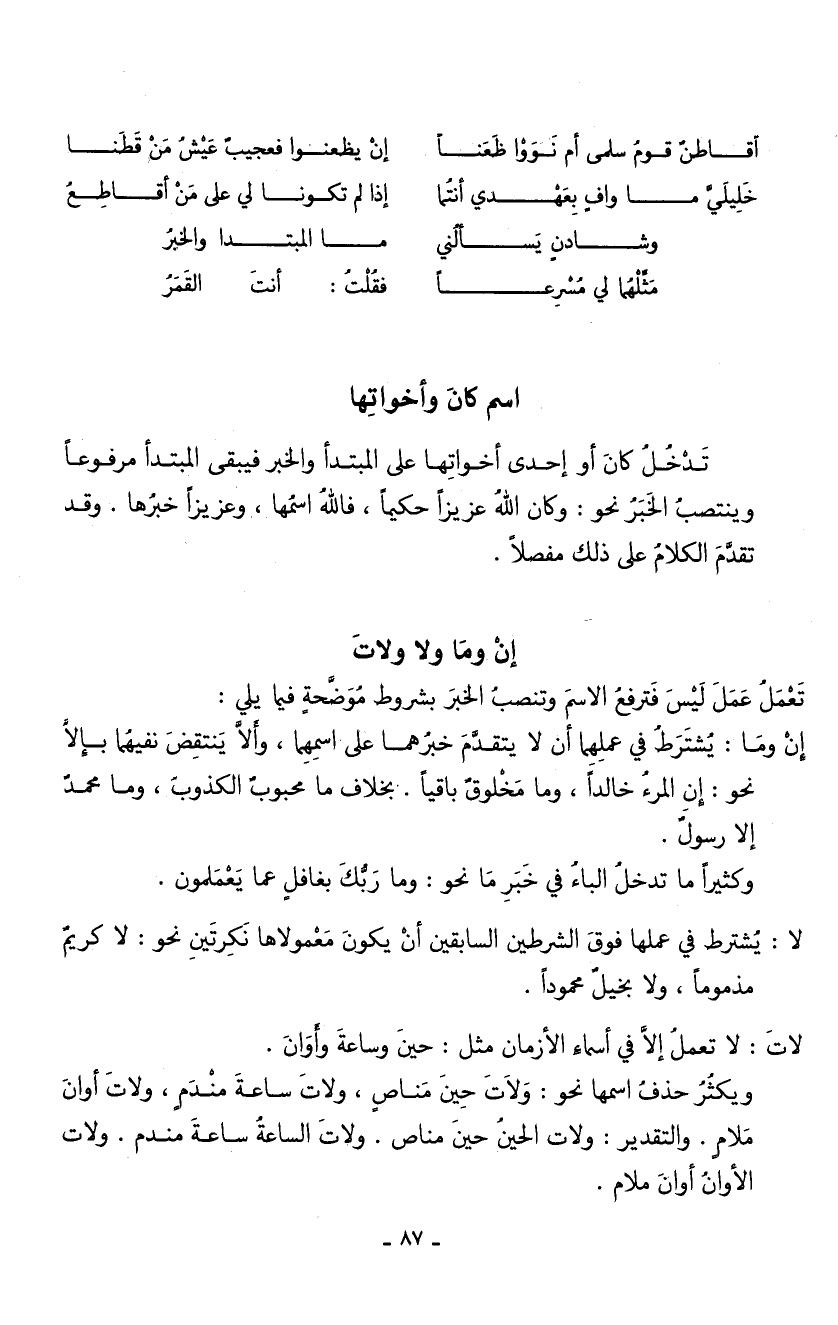 أقاطنٌ قومُ سلمى أم نَوَوْا ظَعَناً إنْ يظعنوا فعجيبٌ عَيْشُ مَنْ قَطَنا
خَلِيلَيَّ ما وافٍ بِعَهْدي أنتُما إذا لم تكونا لي على مَنْ أقاطِعُ
وشادنٍ يَسألُني ما المبتدا والخبرُ
مَثِّلْهُما لي مُسْرِعاً فقُلْتُ : أنتَ القَمَرُ
اسم كانَ وأخواتِها
تَدْخُلُ كانَ أو إحدى أخواتِها على المبتدأ والخبر فيبقى المبتدأ مرفوعاً
وينتصبُ الخَبَرُ نحو : وكان اللهُ عزيزاً حكيماً ، فاللهُ اسمُها ، وعزيزاً خبرُها . وقد
تقدَّمَ الكلامُ على ذلك مفصلاً .
إنْ ومَا ولا ولاتَ
تَعْمَلُ عَمَلَ لَيْسَ فَترفعُ الاسمَ وتنصبُ الخبرَ بشروط مُوَضَّحةٍ فيما يلي :
إنْ ومَا : يُشتَرَطُ في عملِها أن لا يتقدَّمَ خبرُهما على اسمِها ، وأَلاَّ يَنتقِضَ نفيهُما بإلاَّ
نحو : إنِ المرءُ خالداً ، وما مَخْلوقٌ باقياً . بخلاف ما محبوبٌ الكذوبُ ، وما محمدٌ
إلا رسولٌ .
وكثيراً ما تدخلُ الباءُ في خَبَرِ مَا نحو : وما رَبُّكَ بغافلٍ عما يَعْمَلمون .
لا : يُشترط في عملها فوقَ الشرطين السابقين أنْ يكونَ مَعْمولاها نَكِرتَينِ نحو : لا كريمٌ
مذموماً ، ولا بخيلٌ محموداً .
لاتَ : لا تعملُ إلاَّ في أسماء الأزمان مثل : حينَ وساعةَ وأَوَانَ .
ويكثُرُ حذفُ اسمها نحو : وَلاَتَ حِينَ مَناصٍ ، ولاتَ ساعةَ منْدَمٍ ، ولاتَ أوانَ
مَلامٍ . والتقدير : ولات الحينُ حينَ مناص . ولاتَ الساعةُ ساعةَ مندم . ولات
الأوانُ أوانَ ملام .
ـ ٨٧ ـ